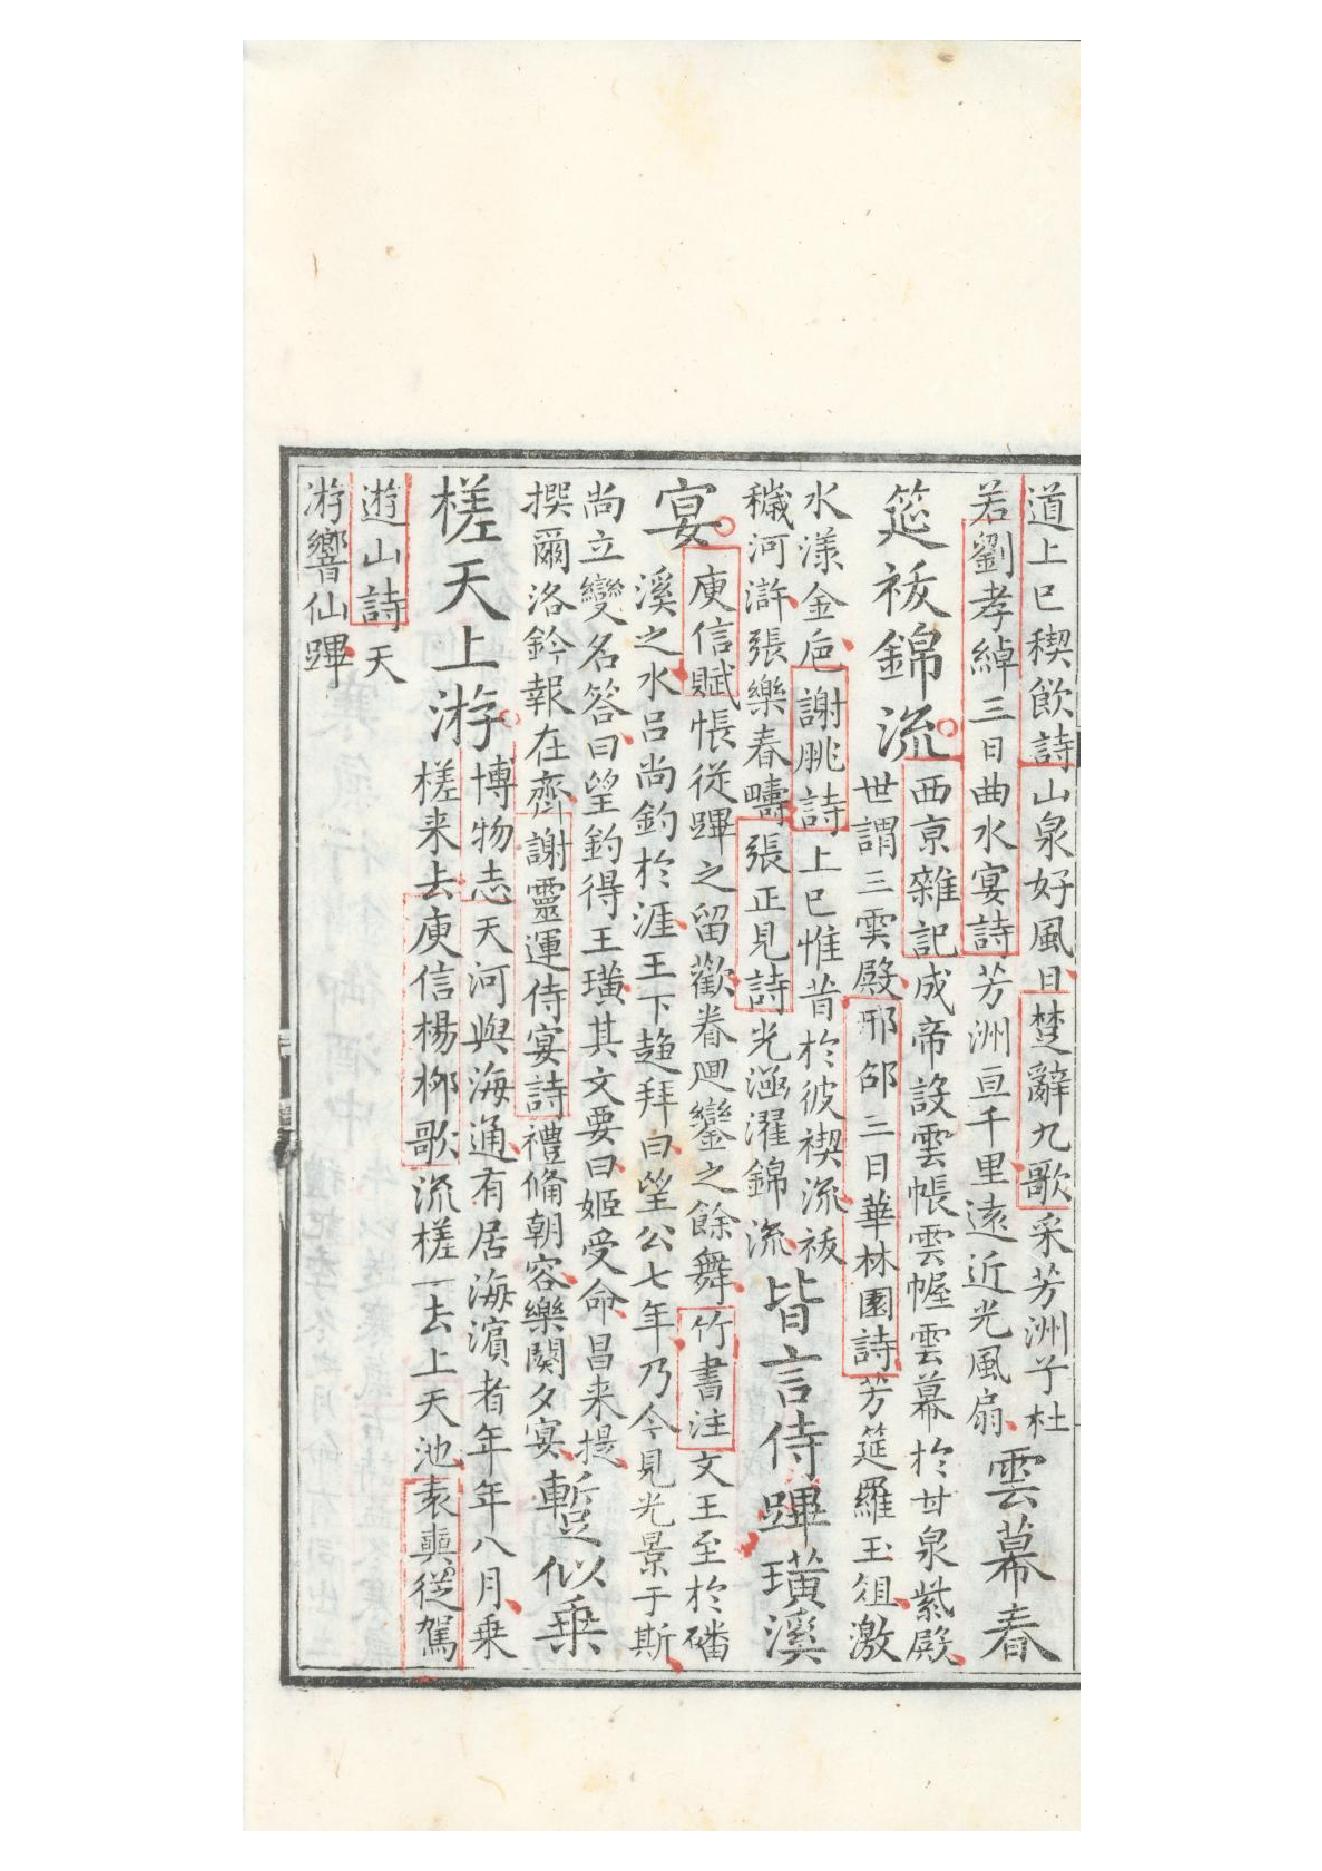 道上巳稧飲詩山泉好風日楚辭九歌采芳洲兮杜
若劉孝綽三日曲水宴詩芳洲亘千里遠近光風扇
雲幕春
筵祓錦流
西京雜記成帝設雲帳雲幄雲幕於甘泉紫殿
世謂三雲殿邢邵三日華林園詩芳筵羅玉俎激
水漾金巵謝朓詩上巳惟昔於彼禊流祓
穢河滸張樂春疇張正見詩光涵濯錦流
皆言侍蹕璜溪
宴
庾信賦悵從蹕之留歡眷迴鑾之餘舞竹書注文王至於磻
溪之水呂尚釣於涯王下趍拜曰望公七年乃今見光景于斯
尚立變名答曰望釣得王璜其文要曰姬受命昌来提
撰爾洛鈐報在齊謝靈運侍宴詩禮俻朝容樂闋夕宴
暫似乗
槎天上游
博物志天河與海通有居海濵者年年八月乗
槎来去庾信楊栁歌流槎一去上天池袁奭從駕
遊山詩天
游響仙蹕